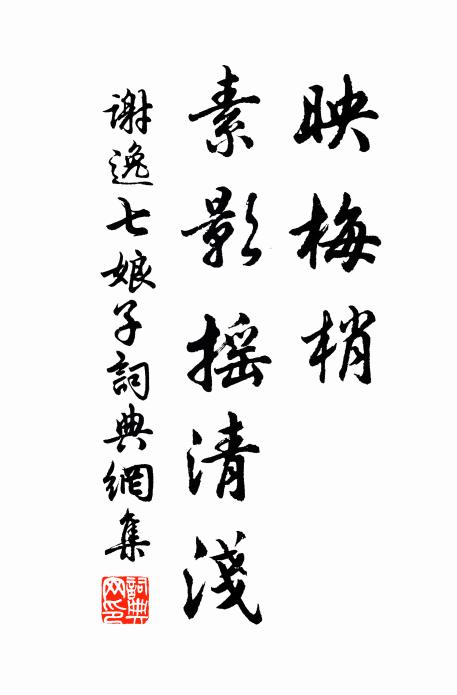 映梅梢
素影摇清淺
謝逸七娘子詞典網集
詞典网印